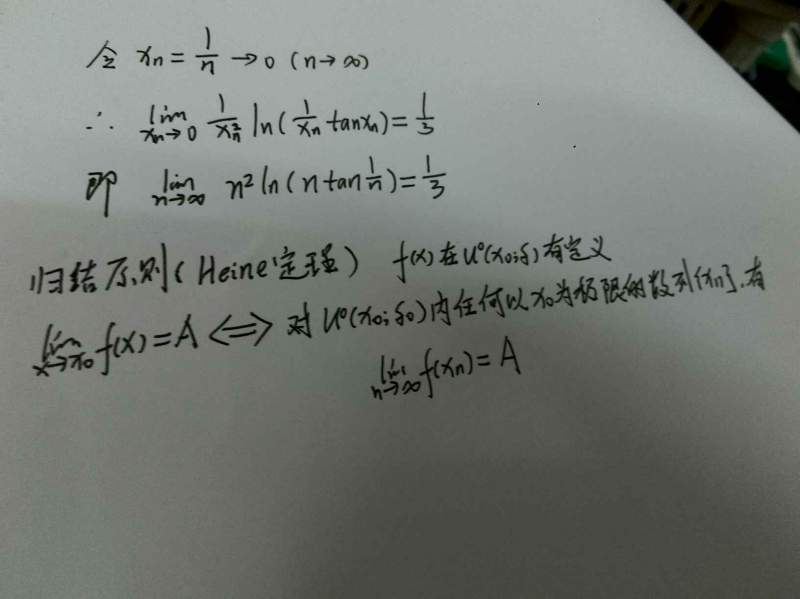 令 xₙ = 1/n → 0 (n→∞)
∴ lim_{xₙ→0} 1/xₙ² ln(1/xₙ tanxₙ) = 1/3
即 lim_{n→∞} n² ln(n tan 1/n) = 1/3
归结原则(Heine定理) f(x)在U°(x₀;δ)有定义
lim_{x→x₀} f(x) = A ⟺ 对U°(x₀;δ₀)内任何以x₀为极限的数列{xₙ},有
lim_{n→∞} f(xₙ) = A